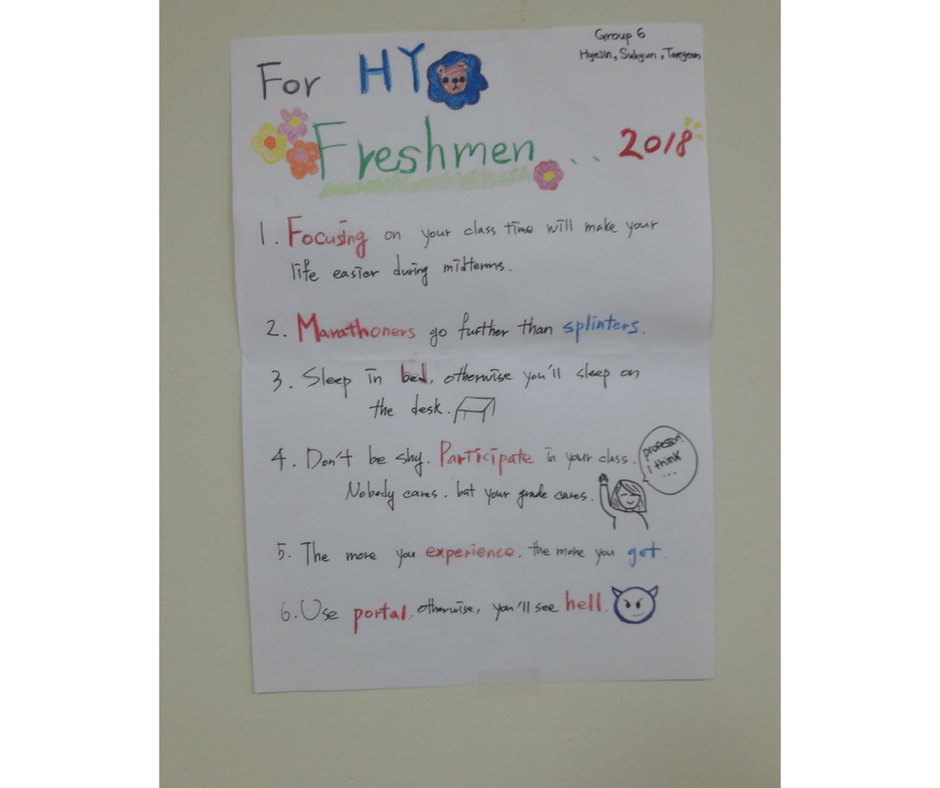 Group 6
Hyejin, Suhyun, Taeyeon
For HY
Freshmen... 2018
1. Focusing on your class time will make your
life easier during midterms.
2. Marathoners go further than splinters.
3. Sleep in bed, otherwise you'll sleep on
the desk.
4. Don't be shy. Participate in your class.
professor!
I think
...
Nobody cares, but your grade cares.
5. The more you experience, the more you get.
6. Use portal, otherwise, you'll see hell.